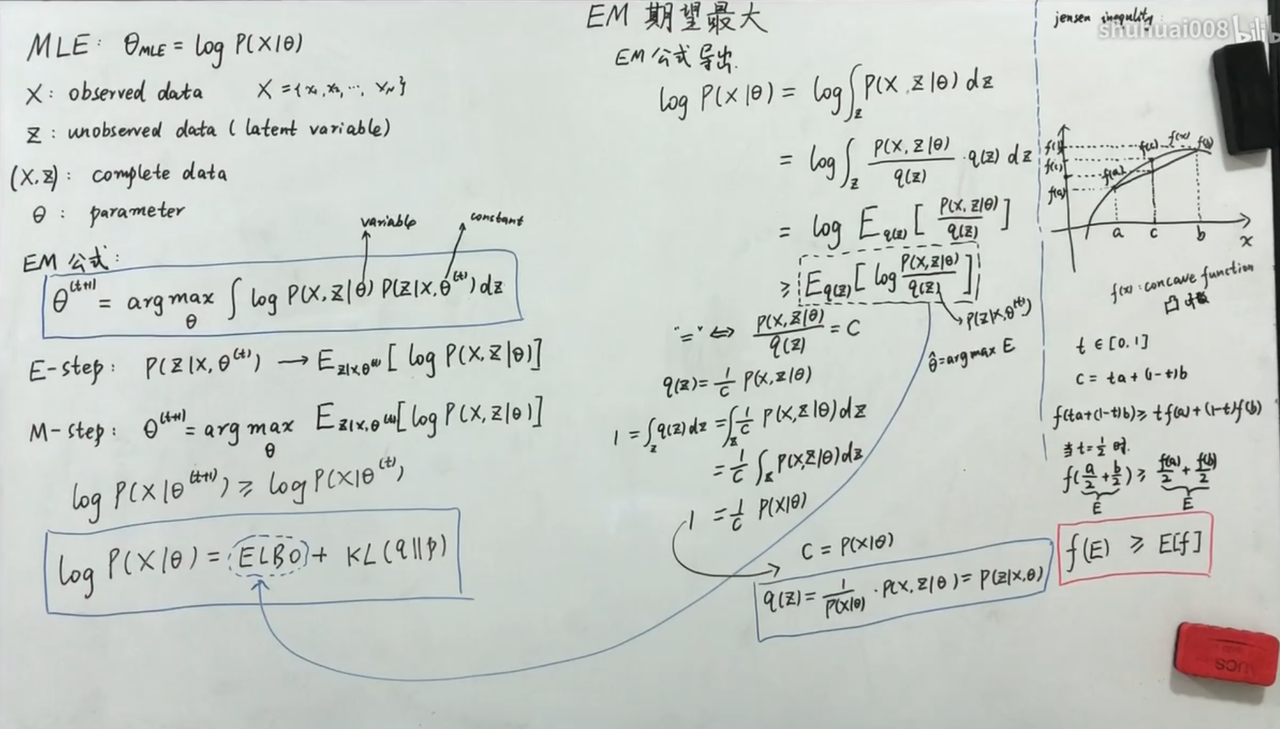 EM 期望最大
MLE: θ_MLE = log P(X|θ)
X: observed data X = {x₁, x₂, ..., x_N}
Z: unobserved data (latent variable)
(X,Z): complete data
θ: parameter
EM 公式:
variable constant
θ^(t+1) = arg max_θ ∫ log P(X,Z|θ) P(Z|X,θ^(t)) dz
E-step: P(Z|X,θ^(t)) → E_{Z|X,θ^(t)}[log P(X,Z|θ)]
M-step: θ^(t+1) = arg max_θ E_{Z|X,θ^(t)}[log P(X,Z|θ)]
log P(X|θ^(t+1)) ≥ log P(X|θ^(t))
log P(X|θ) = ELBO + KL(q||p)
EM 公式导出.
log P(X|θ) = log ∫_z P(X,Z|θ) dz
= log ∫_z P(X,Z|θ)/q(z) · q(z) dz
= log E_{q(z)}[P(X,Z|θ)/q(z)]
≥ E_{q(z)}[log P(X,Z|θ)/q(z)]
→ P(Z|X,θ^(t))
"=" ⇔ P(X,Z|θ)/q(z) = C
θ̂ = arg max E
q(z) = 1/C P(X,Z|θ)
1 = ∫_z q(z) dz = ∫_z 1/C P(X,Z|θ) dz
= 1/C ∫_z P(X,Z|θ) dz
1 = 1/C P(X|θ)
C = P(X|θ)
q(z) = 1/P(X|θ) · P(X,Z|θ) = P(Z|X,θ)
jensen inequlity
shuhuai008 bilibili
f(b) f(c) f(a)
f(a) f(c) f(x) f(b)
a c b x
f(x): concave function
凸函数
t ∈ [0,1]
c = ta + (1-t)b
f(ta+(1-t)b) ≥ tf(a) + (1-t)f(b)
当 t = 1/2 时.
f(a/2 + b/2) ≥ f(a)/2 + f(b)/2
E E
f(E) ≥ E[f]